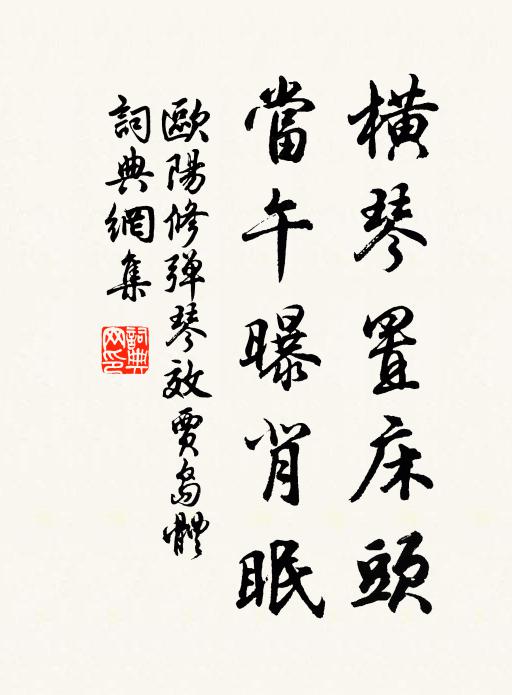 橫琴置床頭
當午曝背眠
歐陽修彈琴效賈島體
詞典網集
詞典
网印